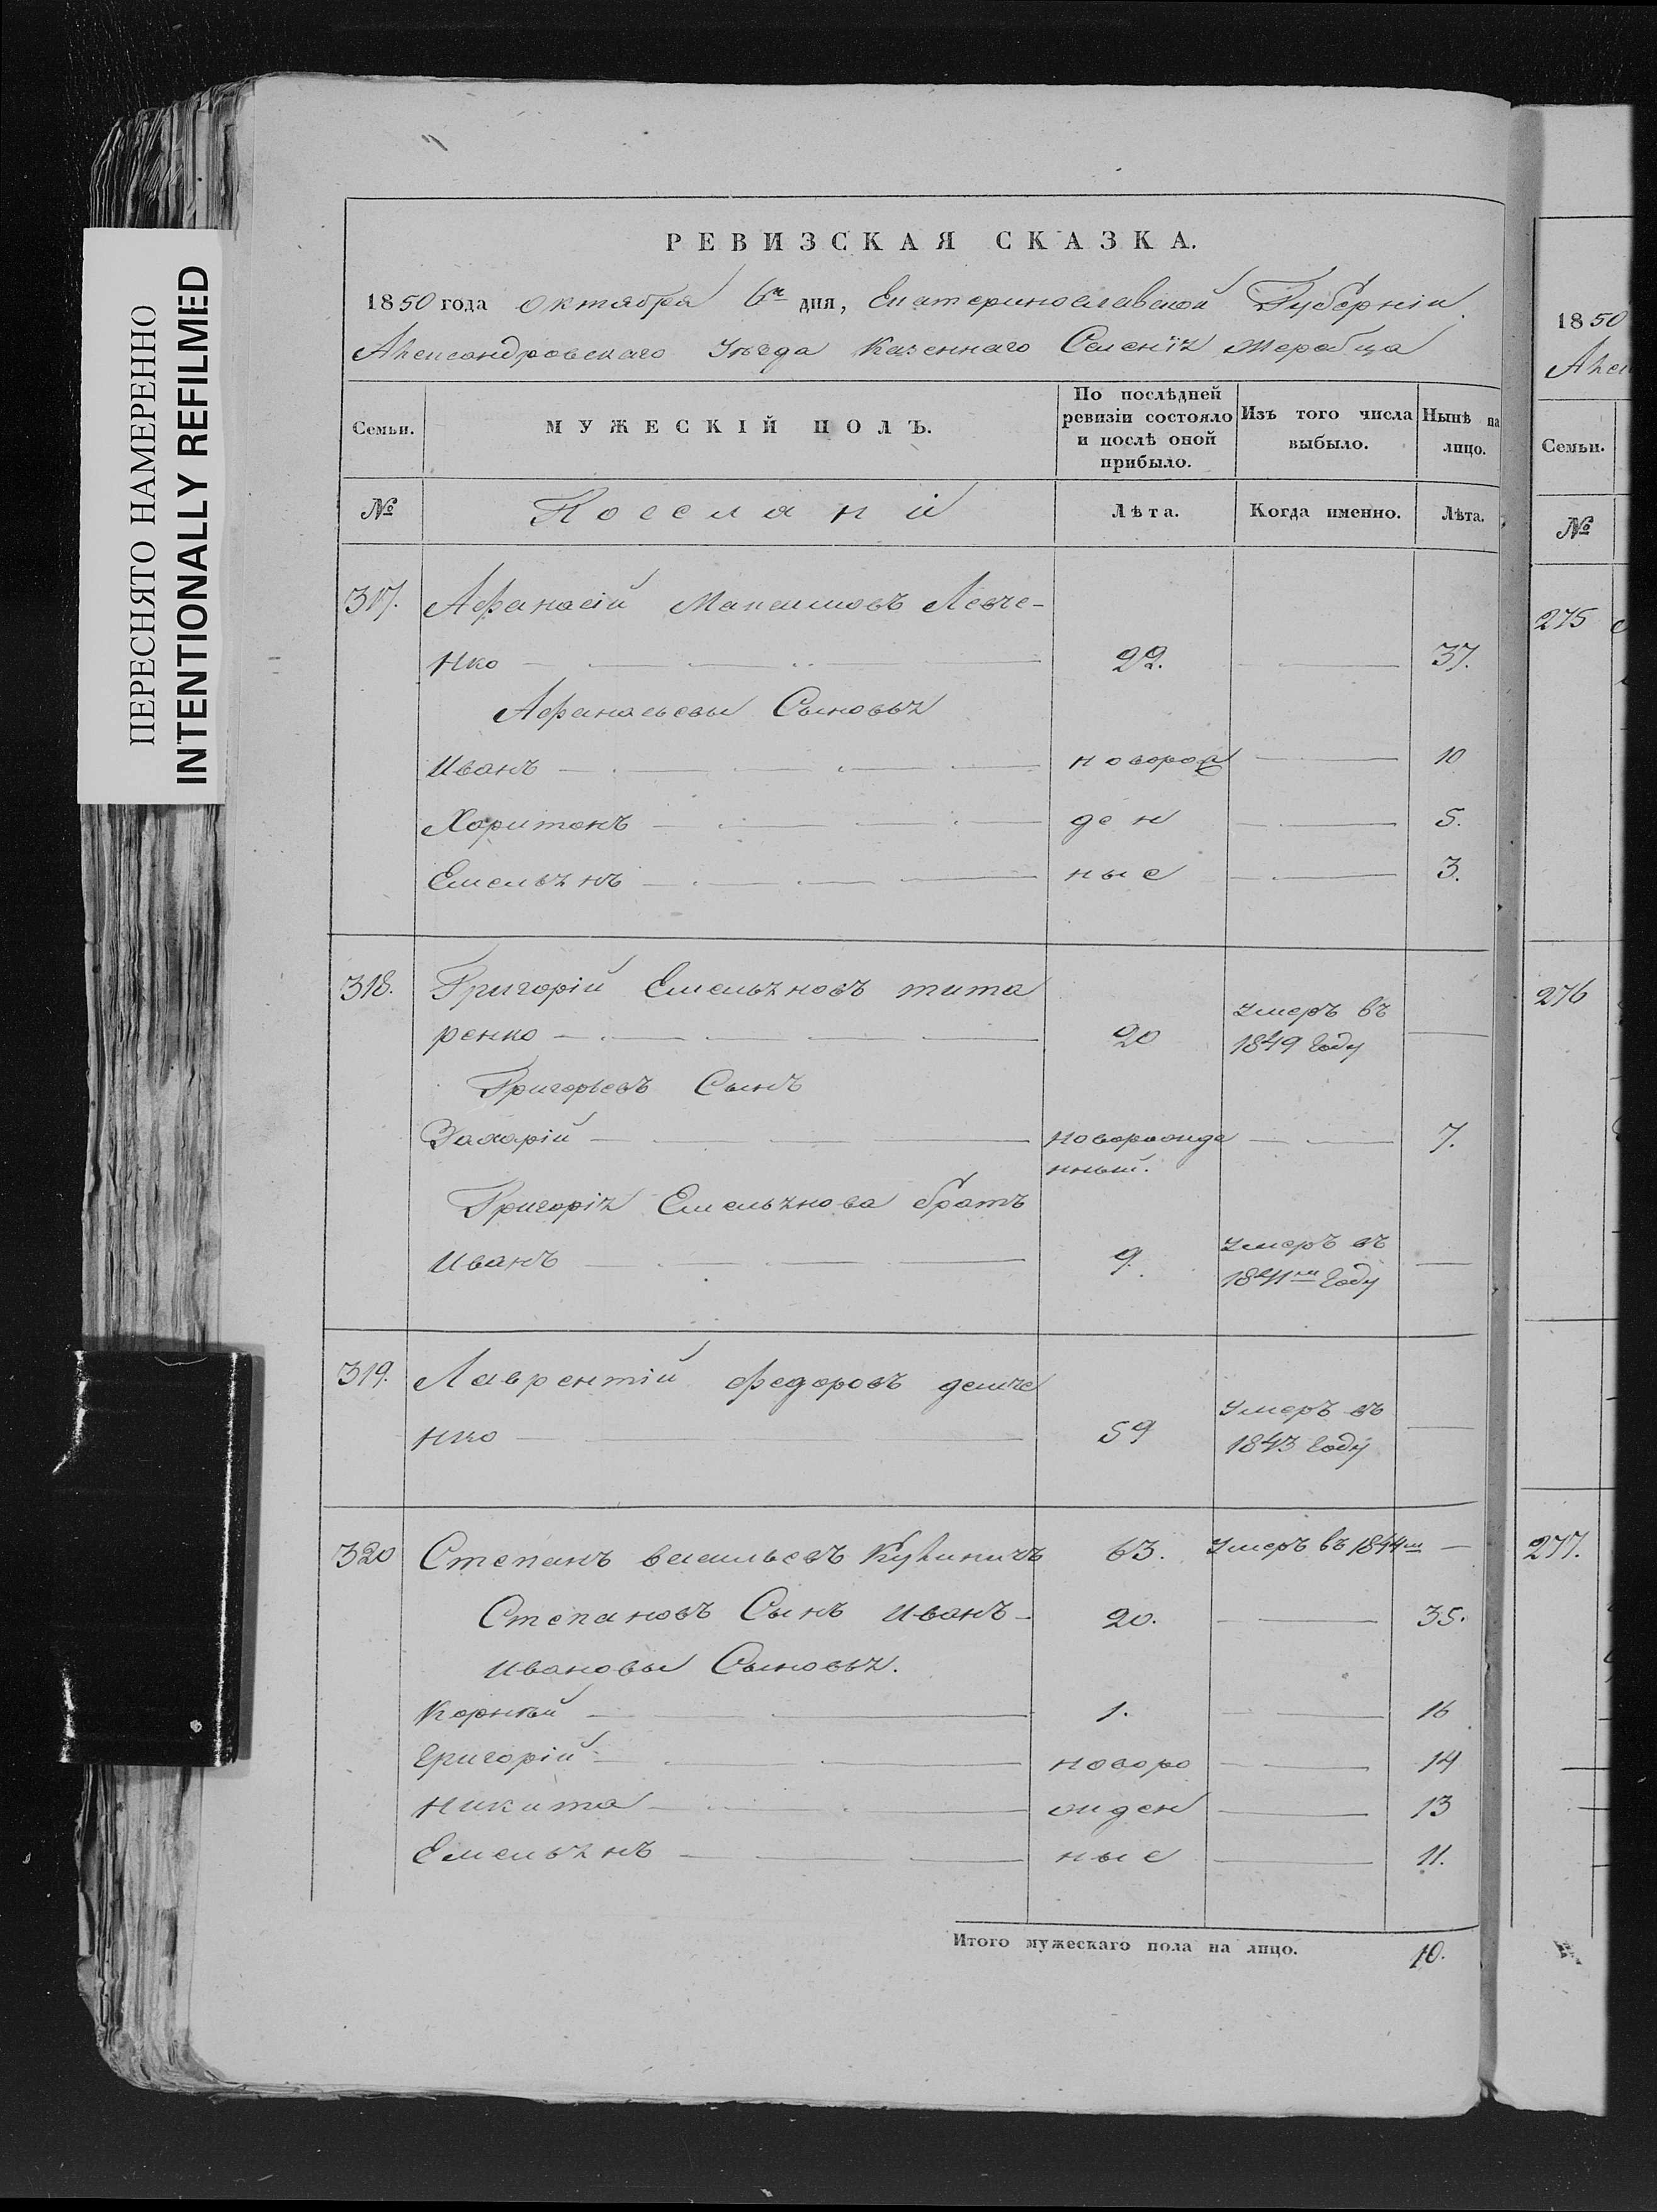 ПЕРЕСНЯТО НАМЕРЕННО
INTENTIONALLY REFILMED
РЕВИЗСКАЯ СКАЗКА.
1850 года Октября 6го дня, Екатеринославской Губерніи
Александровскаго Уѣзда Казеннаго Селенія Жеребца
Семьи. МУЖЕСКІЙ ПОЛЪ. По послѣдней ревизіи состояло и послѣ оной прибыло. Изъ того числа выбыло. Нынѣ на лицо.
№ Поселяни Лѣта. Когда именно. Лѣта.
317. Афанасій Максимовъ Левче-
нко 22. 37.
Афанасьевы Сыновья
Иванъ новорож 10
Харитонъ ден 5.
Емельянъ ные 3.
318. Григорій Емельяновъ тита
ренко 20 Умеръ въ 1849 году
Григорьевъ Сынъ
Захарій новорожде 7.
нный.
Григорія Емельянова братъ
Иванъ 9. Умеръ въ 1841м году
319. Лаврентій Федоровъ демче
нко 59 Умеръ въ 1843 году
320 Степанъ васильевъ 63. Умеръ въ 1844м
Степановъ Сынъ Иванъ 20. 35.
Ивановы Сыновья.
Корнѣй 1. 16
Григорій новоро 14
Никита жден 13
Емельянъ ные 11.
Итого мужескаго пола на лицо. 10.
1850
Семьи.
№
275
276
277.